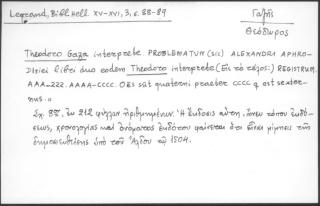 Legrand, Bibl. Hell. XV-XVI, 3, σ. 88-89
Γαζῆς
Θεόδωρος
Theodoro Gaza interprete. PROBLEMATUM (sic) ALEXANDRI APHRO-
DISIEI libri duo eodem Theodoro interprete (Εἰς τὸ τέλος:) REGISTRUM.
AAA-ZZZ. AAAA-CCCC. OES sūt quaterni praeter CCCC q est sexter-
nus.»
Σχ. 8ον, ἐκ 212 φύλλων ἠριθμημένων. Ἡ ἔκδοσις αὕτη, ἄνευ τόπου ἐκδό-
σεως, χρονολογίας καὶ ὀνόματος ἐκδότου φαίνεται ὅτι εἶναι μίμησις τῆς
δημοσιευθείσης ὑπὸ τοῦ Ἄλδου τῷ 1504.